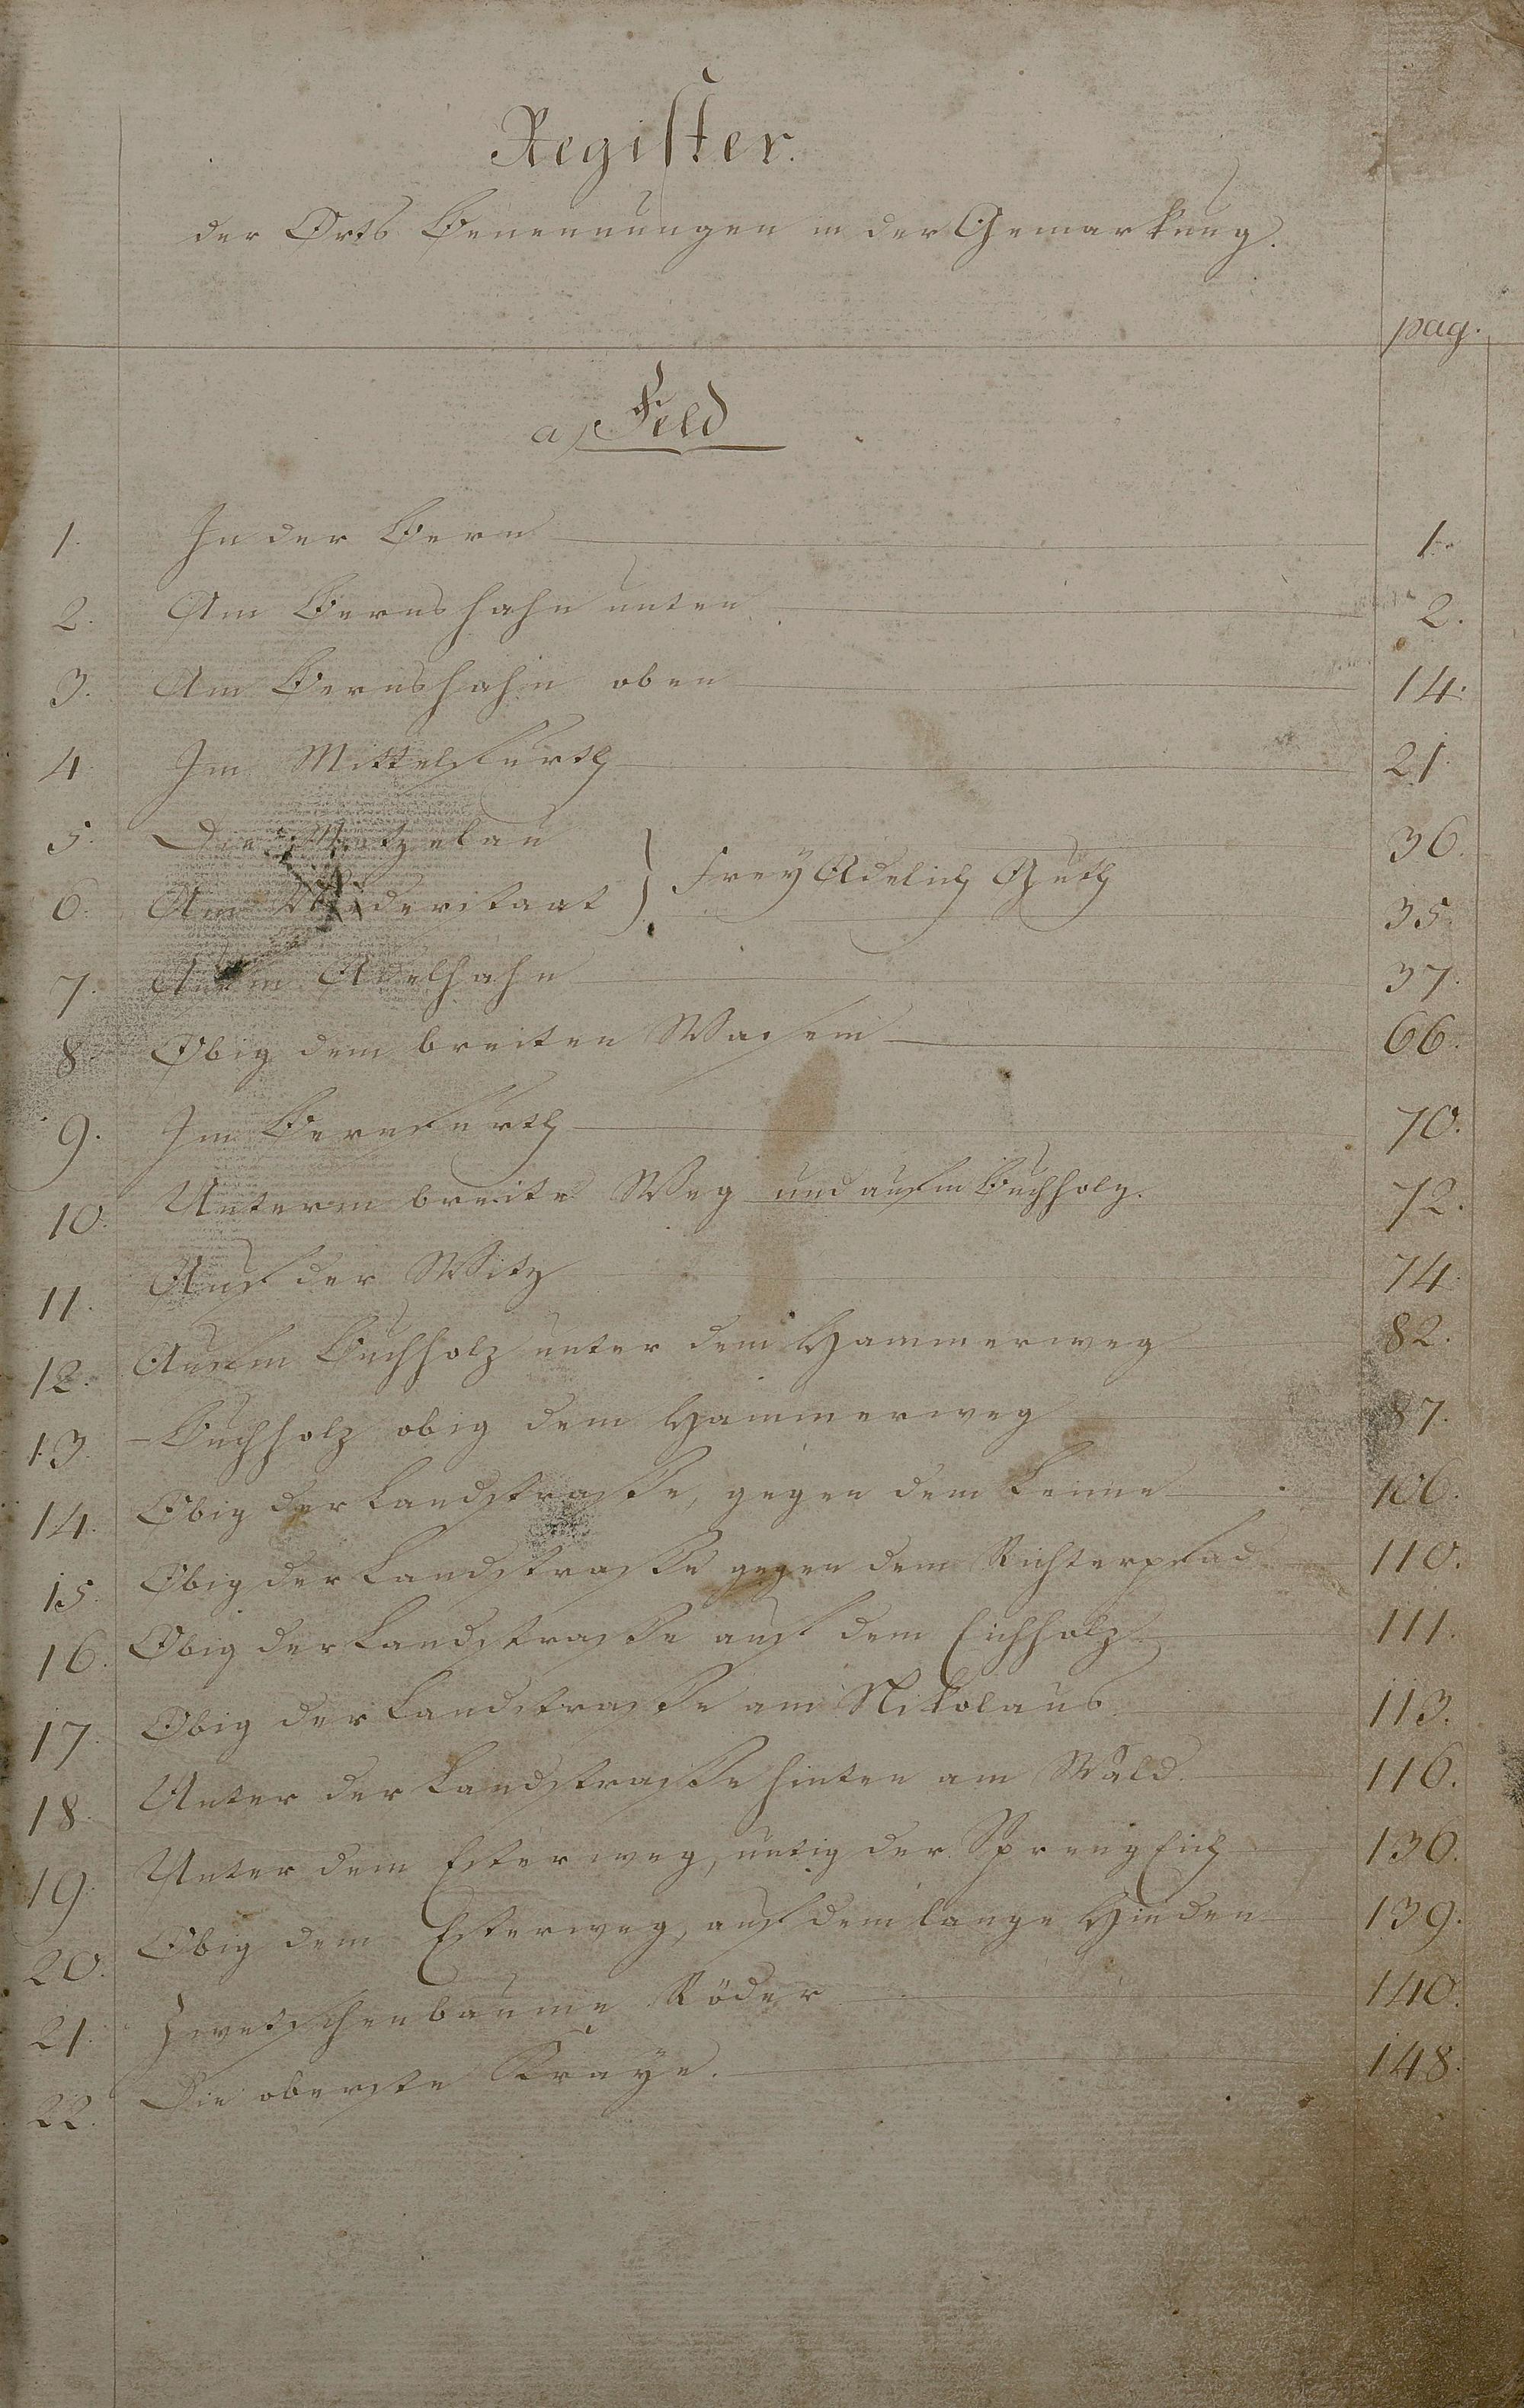 Register.
der Orts Benennungen in der Gemarkung.
pag.
a, Feld
1. In der Bern 1.
2. Am Bernshahn unten 2.
3. Am Bernshahn oben 14.
4. Im Mittelfurth 21.
5. Die Metzelau 36.
Frey Adelich Guth
6. Am 35.
7. Auf'm Adelhahn 37.
8. Obig dem breiten Wasem 66.
9. Im Bernfurth 70.
10. Unterm breite Weg und auf'm Buchholz. 72.
11. Auf der Witz 74.
12. Auf'm Buchholz unter dem Hammerweg 82.
13. – Buchholz obig dem Hammerweg 87.
14. Obig der Landstrasse, gegen dem Leime 106.
15. Obig der Landstrasse gegen dem Richterpfad 110.
16. Obig der Landstrasse auf dem Eichholz 111.
17. Obig der Landstrasse am Nikolaus 113.
18. Unter der Landstrasse hinten am Wald. 116.
19. Unter dem Esterweg, untig der Spreng Eich 136.
20. Obig dem Esterweg, auf dem lange Hinden 139.
21. Zwetschenbäume Röder 140.
22. Die oberste Kräye. 148.